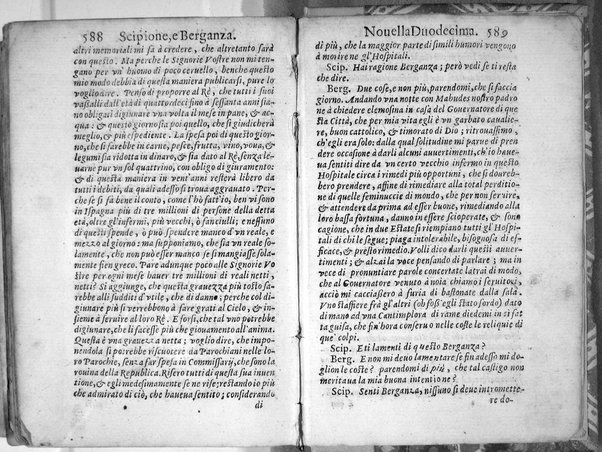 588 Scipione, e Berganza.
altri memoriali mi fa à credere, che altretanto sarà
con questo. Ma perche le Signorie Vostre non mi ten-
gano per vn' huomo di poco ceruello, benche questo
mio modo debbia di questa maniera publicarsi, pure lo
voglio dire. Penso di proporre al Rè, che tutti i suoi
vassalli dall' età di quattordeci sino à sessanta anni sia-
no obligati digiunare vna volta il mese in pane, & ac-
qua: & questo giorno sia poi quello, che si giudicherà
meglio, & più espediente. La spesa poi di questo gior-
no, che si farebbe in carne, pesce, frutta, vino, voua, &
legumi sia ridotta in dinaro, & sia dato al Rè, senza le-
uarne pur vn sol quattrino, con obligo di giuramento:
& di questa maniera in vent' anni resterà libero da
tutti i debiti, da quali adesso si troua aggrauato. Per-
che se si fà bene il conto, come l'hò fatt'io, ben vi sono
in Ispagna più di tre millioni di persone della detta
età, oltre gl'infermi, più vecchi, ò fanciulli; e nessuno
di questi spende, ò può spendere manco d'vn reale, e
mezzo al giorno: ma supponiamo, che sia vn reale so-
lamente, che non può esser manco se si mangiasse sola-
mente sien greco. Pare adunque poco alle Signorie Vo
stre per ogni mese hauer tre millioni di reali netti,
netti? Si aggiunge, che questa grauezza più tosto sa-
rebbe alli sudditi d'vtile, che di danno; perche col di-
giunare più si verrebbono à fare grati al Cielo, & in-
sieme à seruire al loro Rè. E forsi, che tal vno potrebbe
digiunare, che li facesse più che giouamento all' anima.
Questa è vna grauezza netta; voglio dire, che impo-
nendola si potrebbe riscuotere da Parochiani nelle lo-
ro Parochie, senza far spesa in Commissarij, che sono la
rouina della Republica. Risero tutti di questa sua inuen
tione, & egli medesimamente se ne rise; restando io più
che admirato di ciò, che haueua sentito; considerando
di
Nouella Duodecima. 589
di più, che la maggior parte di simili humori vengono
à morire ne gl'Hospitali.
Scip. Hai ragione Berganza; però vedi se ti resta
che dire.
Berg. Due cose, e non più, parendomi, che si faccia
giorno. Andando vna notte con Mahudes nostro padro
ne à chiedere elemosina in casa del Gouernatore di que
sta Città, che per mia vita egli è vn garbato caualie-
re, buon cattolico, & timorato di Dio; ritrouassimo,
ch'egli era solo: dalla qual solitudine mi parue di pren
dere occasione à darli alcuni auuertimenti, ch'io haue-
ua sentiti dire da vn certo vecchio infermo in questo
Hospitale circa i rimedi più opportuni, che si doureb-
bero prendere, affine di rimediare alla total perditio-
ne di quelle feminuccie di mondo, che per non seruire,
& attendere da prima ad esser buone, rimediando alla
loro bassa fortuna, danno in essere scioperate, & sono
cagione, che in due Estate si riempiano tutti gl' Hospi-
tali di chi le segue; piaga intolerabile, bisognosa di ef-
ficace, & presto rimedio. Volli dico darli questi auuer-
timenti; & alzai la voce pensando di parlare; ma in
vece di pronuntiare parole concertate latrai di modo,
che al Gouernatore venuto à noia chiamò i seruitori,
acciò mi cacciassero à furia di bastonate dalla sala.
Vno staffiere frà gl'altri (ch'foss' egli stato sordo) dato
di mano ad vna Cantimplora di rame diedemi in si fat
ta guisa, che fin' hora conseruo nelle coste le reliquie di
que' colpi.
Scip. E ti lamenti di questo Berganza?
Berg. E non mi deuo lamentare se fin adesso mi do-
glion le coste? parendomi di più, che tal castigo non
meritaua la mia buona intentione?
Scip. Senti Berganza, nissuno si deue intromette-
re do-